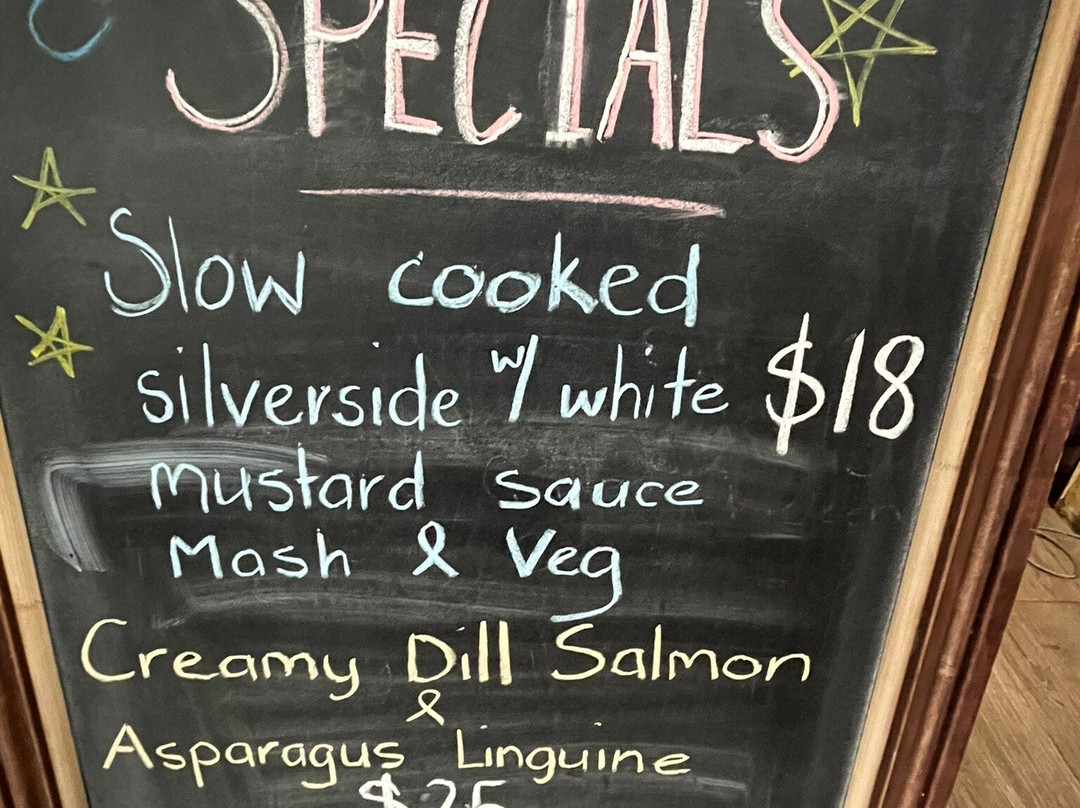 SPECIALS
Slow cooked
silverside w/ white $18
mustard sauce
Mash & Veg
Creamy Dill Salmon
&
Asparagus Linguine
$25